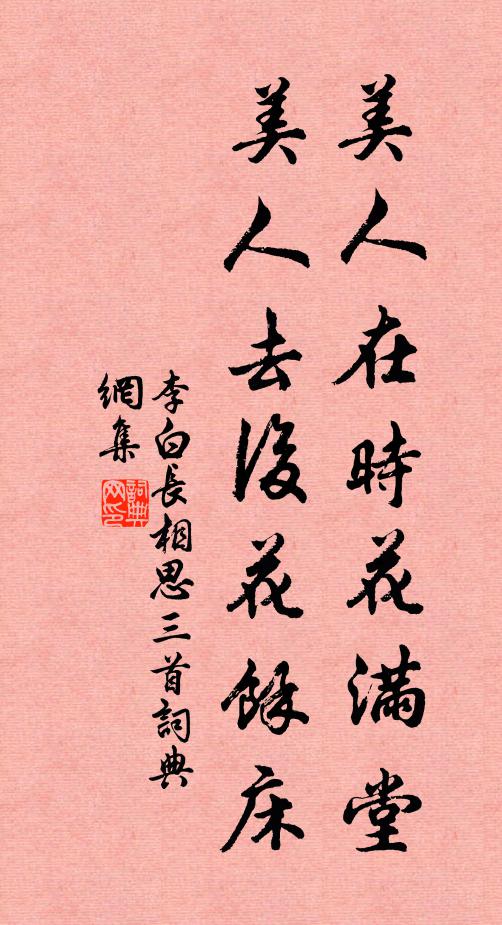 美人在時花滿堂
美人去後花餘床
李白長相思三首詞典
網集
詞典
網印